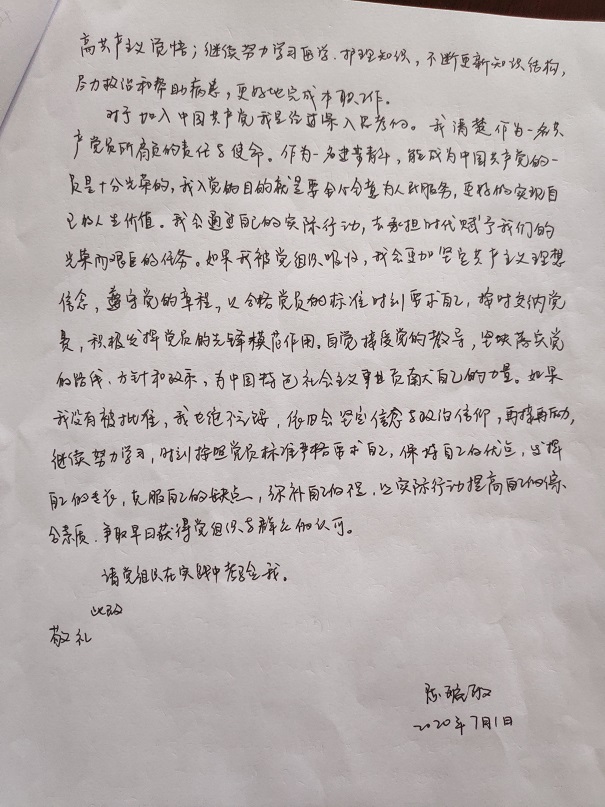 高共产主义觉悟；继续努力学习医学、护理知识，不断更新知识结构，
尽力救治和帮助病患，更好地完成本职工作。
对于加入中国共产党我是经过深入思考的。我清楚作为一名共
产党员所肩负的责任与使命。作为一名进步青年，能成为中国共产党的一
员是十分光荣的，我入党的目的就是要全心全意为人民服务，更好的实现自
己的人生价值。我会通过自己的实际行动，去承担时代赋予我们的
光荣而艰巨的任务。如果我被党组织吸收，我会更加坚定共产主义理想
信念，遵守党的章程，以合格党员的标准时刻要求自己，按时交纳党
费，积极发挥党员的先锋模范作用。自觉接受党的教导，坚决落实党
的路线、方针和政策，为中国特色社会主义事业贡献自己的力量。如果
我没有被批准，我也绝不气馁，依旧会坚定信念与政治信仰，再接再厉，
继续努力学习，时刻按照党员标准严格要求自己，保持自己的优点，发挥
自己的专长，克服自己的缺点，弥补自己的，以实际行动提高自己的综
合素质，争取早日获得党组织与群众的认可。
请党组织在实践中考验我。
此致
敬礼
2020年7月1日